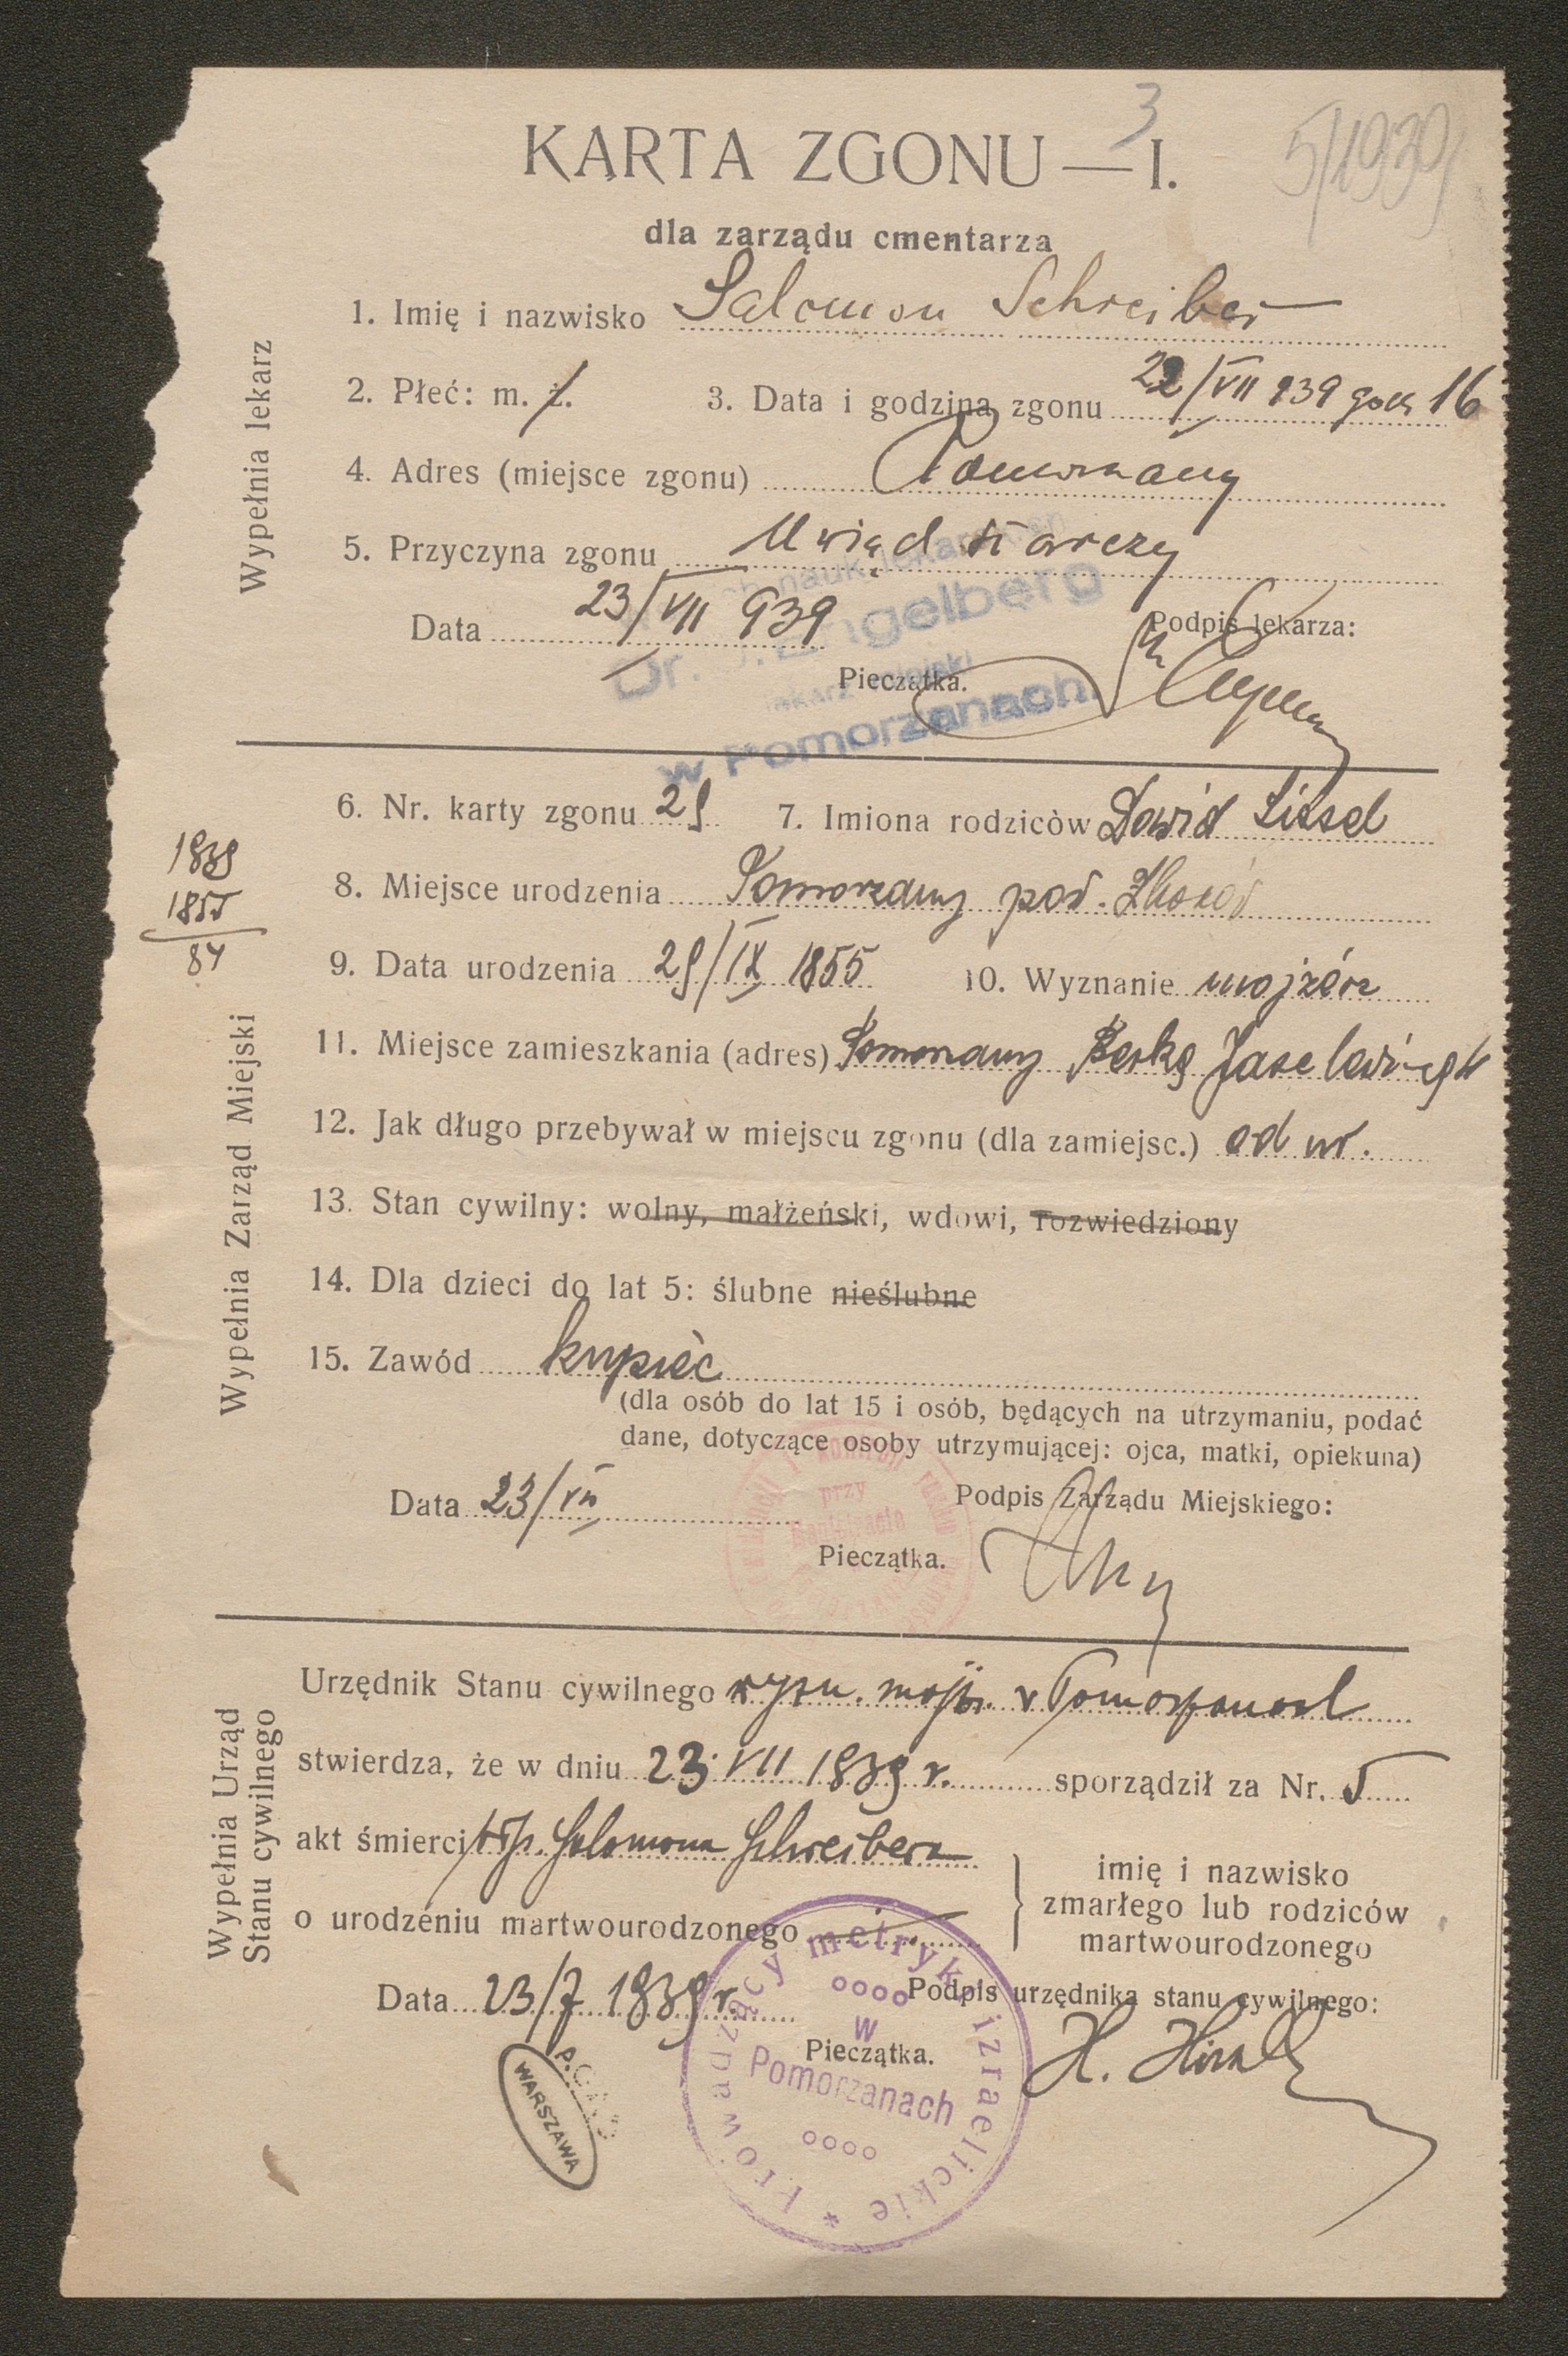 3
5/1939
KARTA ZGONU — I.
dla zarządu cmentarza
Wypełnia lekarz
1. Imię i nazwisko Salomon Schreiber
2. Płeć: m. ż. 3. Data i godzina zgonu 22/VII 939 godz 16
4. Adres (miejsce zgonu) Pomorzany
5. Przyczyna zgonu Uwiąd starczy
Data 23/VII 939 Podpis lekarza:
Pieczątka.
nauk lekarskich
Dr. Engelberg
lekarz miejski
w Pomorzanach
Wypełnia Zarząd Miejski
6. Nr. karty zgonu 29 7. Imiona rodziców Dawid Sissel
1939
1855
84
8. Miejsce urodzenia Pomorzany pow. Zborów
9. Data urodzenia 29/IX 1855 10. Wyznanie mojżesz
11. Miejsce zamieszkania (adres) Pomorzany Berka Joselewicza
12. Jak długo przebywał w miejscu zgonu (dla zamiejsc.) od ur.
13. Stan cywilny: wolny, małżeński, wdowi, rozwiedziony
14. Dla dzieci do lat 5: ślubne nieślubne
15. Zawód kupiec
(dla osób do lat 15 i osób, będących na utrzymaniu, podać
dane, dotyczące osoby utrzymującej: ojca, matki, opiekuna)
Data 23/VII Podpis Zarządu Miejskiego:
przy
Pieczątka.
Wypełnia Urząd
Stanu cywilnego
Urzędnik Stanu cywilnego wyzn. mojż. w Pomorzanach
stwierdza, że w dniu 23. VII 1939 r. sporządził za Nr. 5
akt śmierci Salomona Schreibera
o urodzeniu martwourodzonego
imię i nazwisko
zmarłego lub rodziców
martwourodzonego
Data 23/7 1939 r. Podpis urzędnika stanu cywilnego:
Pieczątka.
H.
Prowadzący metryki izraelickie *
w
Pomorzanach
WARSZAWA